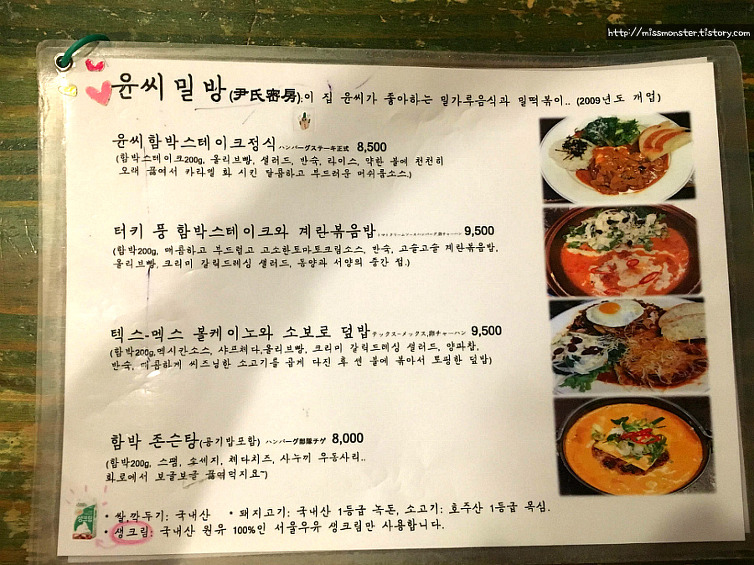 http://missmonster.tistory.com
윤씨 밀 방(尹氏密房):이 집 윤씨가 좋아하는 밀가루음식과 밀떡볶이.. (2009년도 개업)
윤씨함박스테이크정식 ハンバーグステーキ正式 8,500
(함박스테이크200g, 올리브빵, 샐러드, 반숙, 라이스, 약한 불에 천천히
오래 끓여서 카라멜 화 시킨 달콤하고 부드러운 머쉬룸소스.)
터키 풍 함박스테이크와 계란볶음밥 9,500
(함박200g, 매콤하고 부드럽고 고소한토마토크림소스, 반숙, 고슬고슬 계란볶음밥,
올리브빵, 크리미 갈릭드레싱 샐러드, 동양과 서양의 중간 점.)
텍스-멕스 볼케이노와 소보로 덮밥 テックスーメックス,卵チャーハン 9,500
(함박200g,멕시칸소스, 샤프체다,올리브빵, 크리미 갈릭드레싱 샐러드, 양파참,
반숙, 매콤하게 씨즈닝한 소고기를 곱게 다진 후 센 불에 볶아서 토핑한 덮밥)
함박 존슨탕(공기밥포함) ハンバーグ部隊チゲ 8,000
(함박200g, 스팸, 소세지, 체다치즈, 사누끼 우동사리..
화로에서 보글보글 끓여먹지요~)
* 쌀,깍두기: 국내산 * 돼지고기: 국내산 1등급 녹돈, 소고기: 호주산 1등급 목심.
* 생크림: 국내산 원유 100%인 서울우유 생크림만 사용합니다.